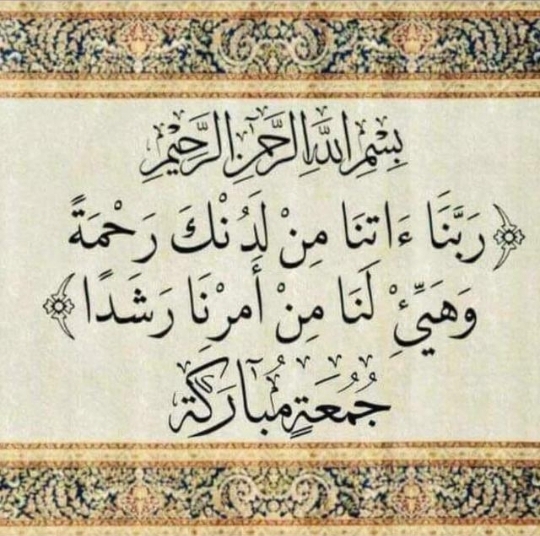 بِسْمِ اللهِ الرَّحْمٰنِ الرَّحِيْمِ
﴿رَبَّنَا ءَاتِنَا مِنْ لَدُنْكَ رَحْمَةً
وَهَيِّئْ لَنَا مِنْ أَمرْنَا رَشَدًا﴾
جُمُعَةٍ مُبٰارَكَة